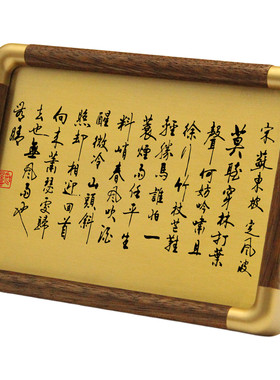 宋蘇東坡定風波
莫聽穿林打葉
聲何妨吟嘯且
徐行竹杖芒鞋
輕勝馬誰怕一
蓑煙雨任平生
料峭春風吹酒
醒微冷山頭斜
照却相迎回首
向來蕭瑟處歸
去也無風雨也
無晴